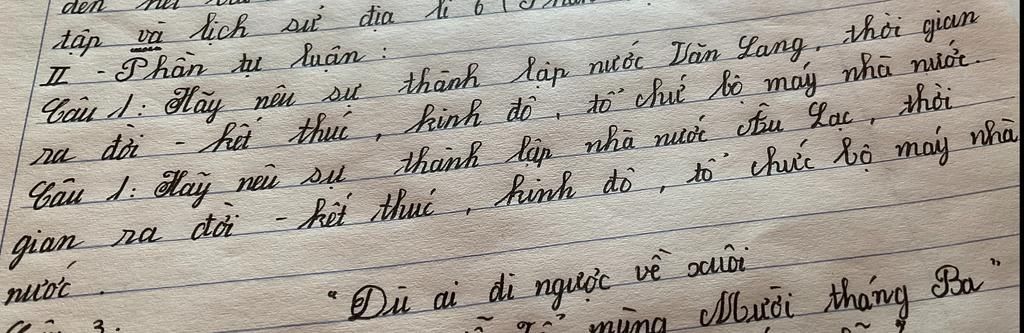 đến hết
tập và lịch sử địa lí 6
II - Phần tự luận :
Câu 1: Hãy nêu sự thành lập nước Văn Lang, thời gian
ra đời - kết thúc, kinh đô, tổ chức bộ máy nhà nước.
Câu 1: Hãy nêu sự thành lập nhà nước Âu Lạc, thời
gian ra đời - kết thúc, kinh đô, tổ chức bộ máy nhà
nước.
"Dù ai đi ngược về xuôi
3: mùng Mười tháng Ba"